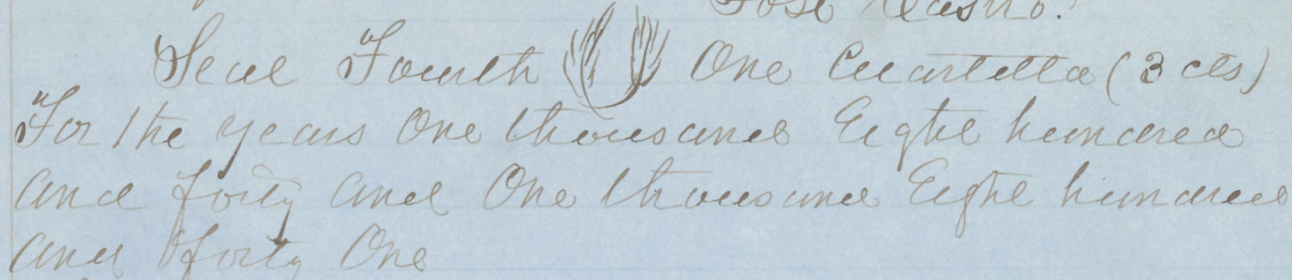 Jose Castro.
Seal Fourth One Cuartetta (3 cts)
"For the years One thousand Eight hundred
and forty and One thousand Eight hundred
and forty One